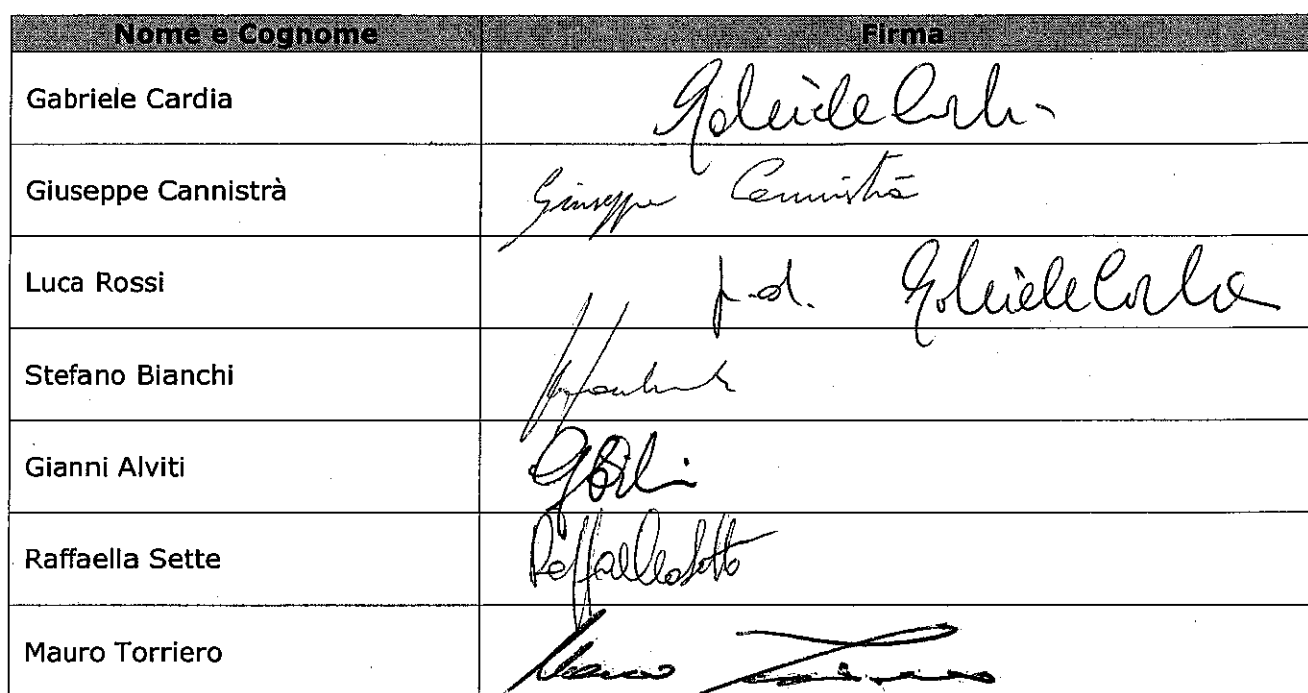 Nome e Cognome Firma
Gabriele Cardia Gabriele Cardia
Giuseppe Cannistrà Giuseppe Cannistrà
Luca Rossi Gabriele Cardia
Stefano Bianchi
Gianni Alviti
Raffaella Sette Raffaella Sette
Mauro Torriero Mauro Torriero